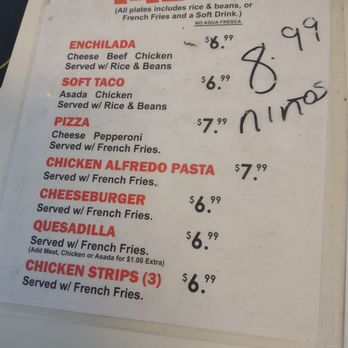 (All plates includes rice & beans, or
French Fries and a Soft Drink.)
NO AGUA FRESCA
ENCHILADA $6.99
Cheese Beef Chicken
Served w/ Rice & Beans
8.99
niños
SOFT TACO $6.99
Asada Chicken
Served w/ Rice & Beans
PIZZA $7.99
Cheese Pepperoni
Served w/ French Fries.
CHICKEN ALFREDO PASTA $7.99
Served w/ French Fries.
CHEESEBURGER $6.99
Served w/ French Fries.
QUESADILLA $6.99
Served w/ French Fries.
(Add Meat, Chicken or Asada for $1.00 Extra)
CHICKEN STRIPS (3) $6.99
Served w/ French Fries.